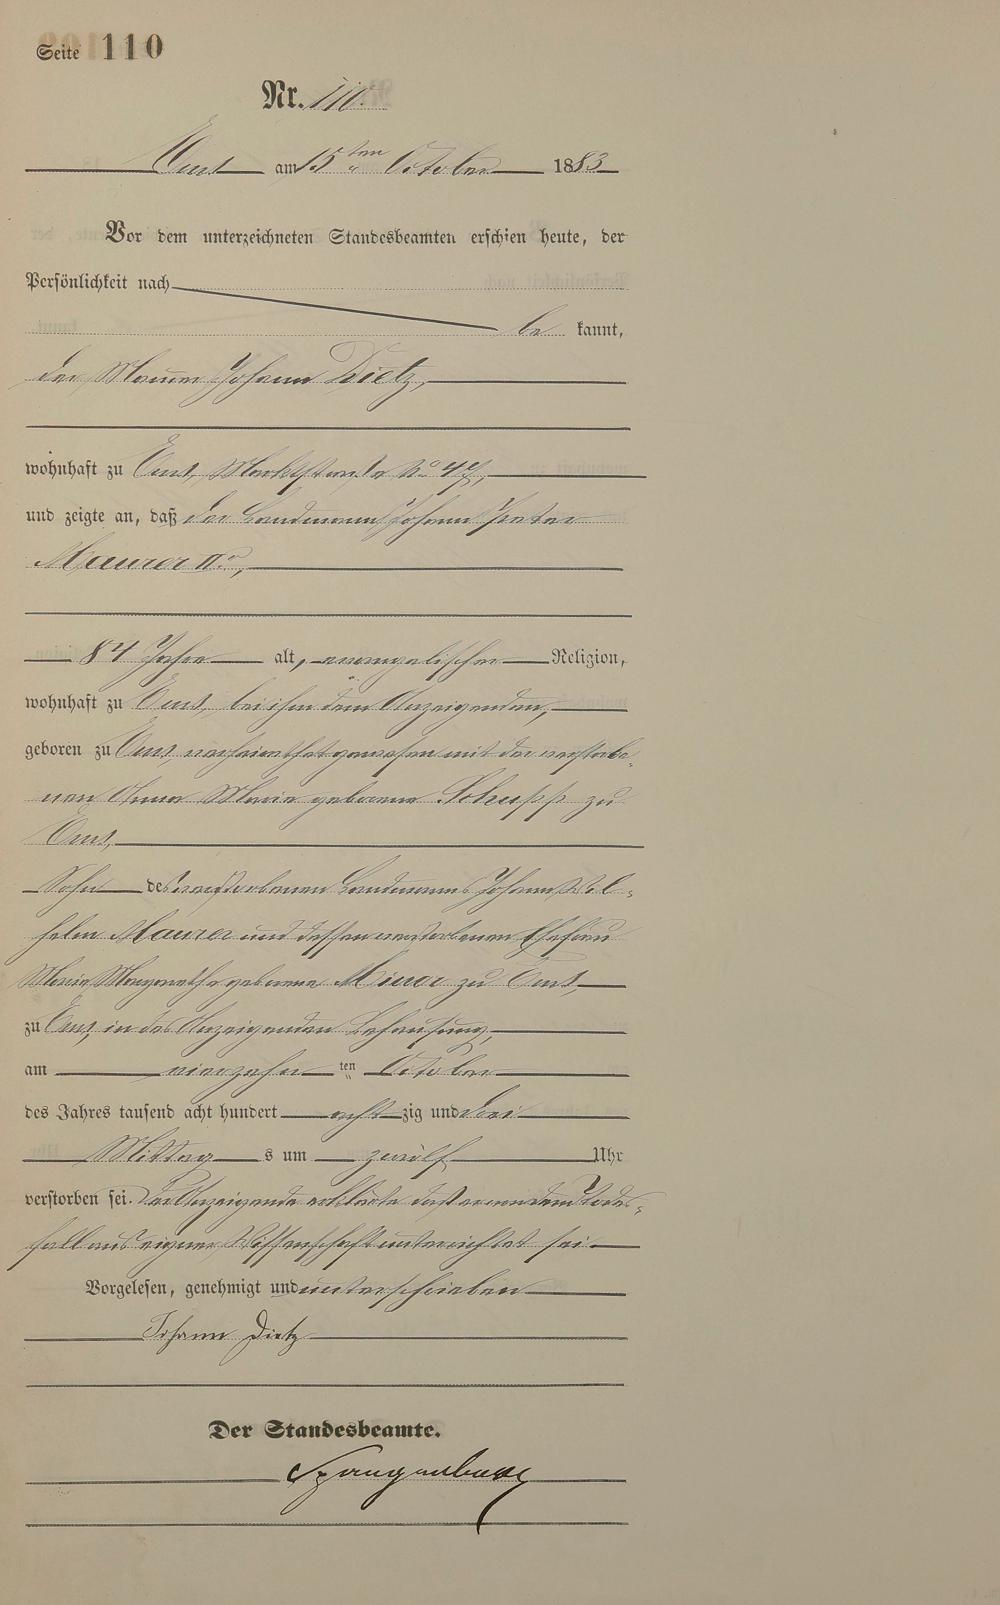 Seite 110
Nr. 110.
Ems am 15ten October 1883
Vor dem unterzeichneten Standesbeamten erschien heute, der
Persönlichkeit nach
be kannt,
der Maurer Johann Dietz,
wohnhaft zu Ems, Marktstraße No 47,
und zeigte an, daß der Landmann Johann Peter
Maurer IIr,
84 Jahre alt, evangelischer Religion,
wohnhaft zu Ems, bei ihm dem Anzeigenden,
geboren zu Ems, verheirathet gewesen mit der verstorbe-
nen Anna Marie geborene Schupp zu
Ems,
Sohn des verstorbenen Landmanns Johann Wil-
helm Maurer und dessen verstorbenen Ehefrau
Marie Margarethe geborene Minor zu Ems,
zu Ems, in des Anzeigenden Behausung,
am vierzehn ten October
des Jahres tausend acht hundert acht zig und drei
Mittag s um zwölf Uhr
verstorben sei. Der Anzeigende erklärte daß er von dem Todes-
fall aus eigner Wissenschaft unterrichtet sei.
Vorgelesen, genehmigt und unterschrieben
Johann Dietz
Der Standesbeamte.
Spangenberg